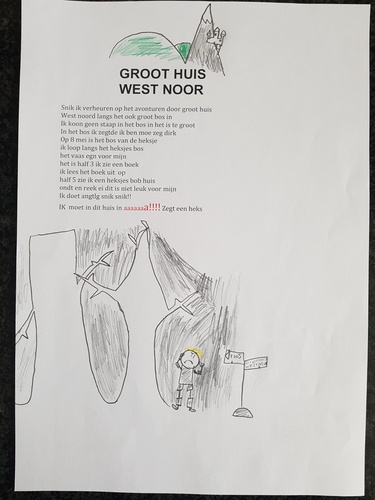 GROOT HUIS
WEST NOOR
Snik ik verheuren op het avonturen door groot huis
West noord langs het ook groot bos in
Ik koon geen staap in het bos in het is te groot
In het bos ik zegtde ik ben moe zeg dirk
Op 8 mei is het bos van de heksje
ik loop langs het heksjes bos
het vaas egn voor mijn
het is half 3 ik zie een boek
ik lees het boek uit op
half 5 zie ik een heksjes bob huis
ondt en reek ei dit is niet leuk voor mijn
Ik doet angtlg snik snik!!
IK moet in dit huis in aaaaaaa!!!! Zegt een heks